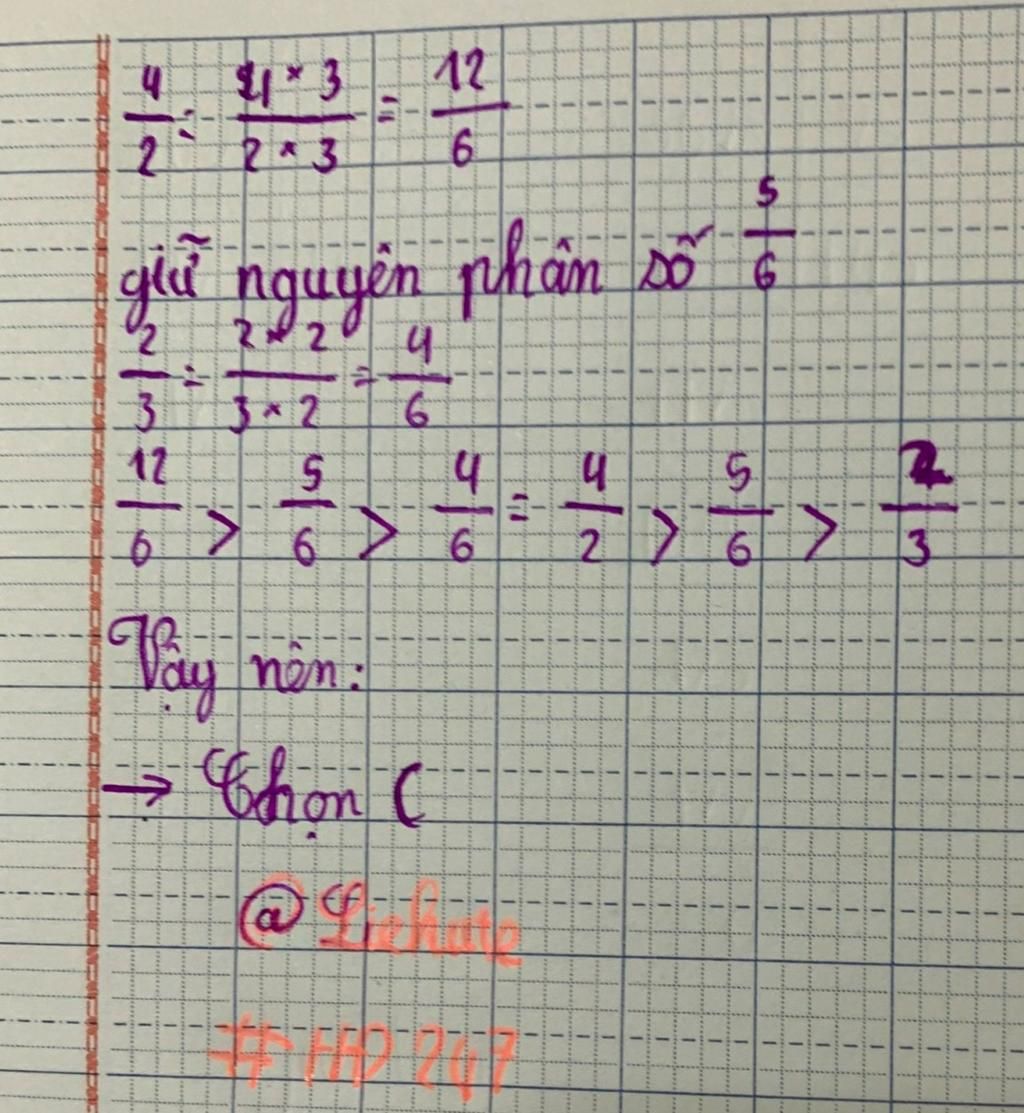 4/2 = 4 × 3 / 2 × 3 = 12/6
giữ nguyên phân số 5/6
2/3 = 2 × 2 / 3 × 2 = 4/6
12/6 > 5/6 > 4/6 = 4/2 > 5/6 > 2/3
Vậy nên:
→ Chọn C
@
# HĐ 247